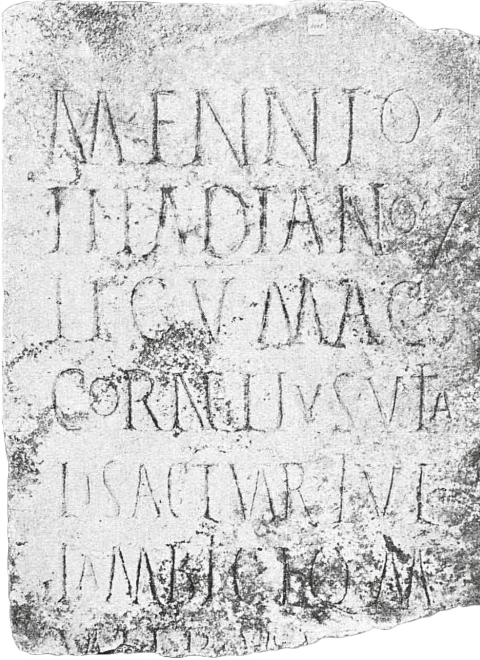 M ENNIO
ILLADIANO 7
LEG V MAC
CORNELIVS VITA
LIS ACTVAR IVL
IAMBICIO M